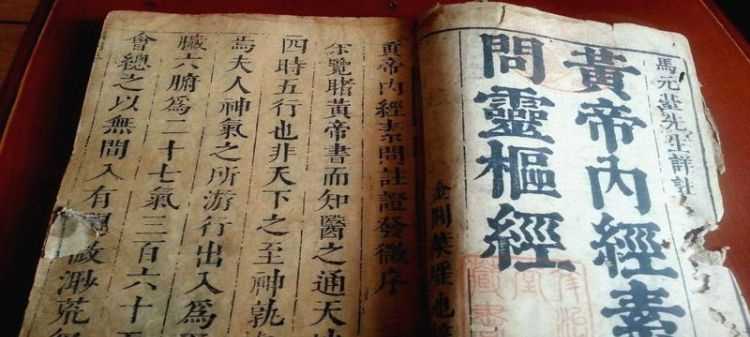 馬元臺先生詳註
黃帝內經素
問靈樞經
金閶
黃帝內經素問註證發微序
余覽睹黃帝書而知醫之通天
四時五行也非天下之至神孰
焉夫人神氣之所游行出入爲
臟六腑爲二十七氣三百六十
會總之以無間入有間微渺荒